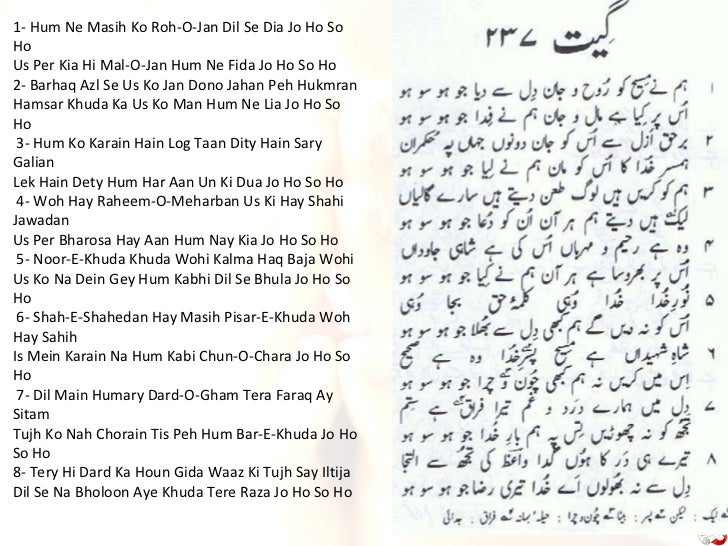 1- Hum Ne Masih Ko Roh-O-Jan Dil Se Dia Jo Ho So
Ho
Us Per Kia Hi Mal-O-Jan Hum Ne Fida Jo Ho So Ho
2- Barhaq Azl Se Us Ko Jan Dono Jahan Peh Hukmran
Hamsar Khuda Ka Us Ko Man Hum Ne Lia Jo Ho So
Ho
3- Hum Ko Karain Hain Log Taan Dity Hain Sary
Galian
Lek Hain Dety Hum Har Aan Un Ki Dua Jo Ho So Ho
4- Woh Hay Raheem-O-Meharban Us Ki Hay Shahi
Jawadan
Us Per Bharosa Hay Aan Hum Nay Kia Jo Ho So Ho
5- Noor-E-Khuda Khuda Wohi Kalma Haq Baja Wohi
Us Ko Na Dein Gey Hum Kabhi Dil Se Bhula Jo Ho So
Ho
6- Shah-E-Shahedan Hay Masih Pisar-E-Khuda Woh
Hay Sahih
Is Mein Karain Na Hum Kabi Chun-O-Chara Jo Ho So
Ho
7- Dil Main Humary Dard-O-Gham Tera Faraq Ay
Sitam
Tujh Ko Nah Chorain Tis Peh Hum Bar-E-Khuda Jo Ho
So Ho
8- Tery Hi Dard Ka Houn Gida Waaz Ki Tujh Say Iltija
Dil Se Na Bholoon Aye Khuda Tere Raza Jo Ho So Ho
گیت ۲۳۷
۱ ہم نے مسیح کو رُوح و جان دِل سے دیا جو ہو سو ہو
اُس پر کیا ہے مال و جان ہم نے فِدا جو ہو سو ہو
۲ برحق ازل سے اُس کو جان دونوں جہاں پہ حکمران
ہمسر خُدا کا اُس کو مان ہم نے لیا جو ہو سو ہو
۳ ہم کو کریں ہیں لوگ طعن دیتے ہیں سارے گالیاں
لیک ہیں دیتے ہم ہر آن اُن کو دُعا جو ہو سو ہو
۴ وہ ہے رحیم و مہرباں اُس کی ہے شاہی جاوداں
اُس پر بھروسا ہے ہر آن ہم نے کیا جو ہو سو ہو
۵ نُورِ خُدا خُدا وُہی کلمۂ حق بجا وُہی
اُس کو نہ دیں گے ہم کبھی دِل سے بھُلا جو ہو سو ہو
۶ شاہِ شہیداں ہے مسیح پسرِ خُدا وہ ہے صحیح
اِس میں کریں نہ ہم کبھی چُون و چرا جو ہو سو ہو
۷ دِل میں ہمارے درد و غم تیرا فراق ہے ستم
تُجھ کو نہ چھوڑیں تِس پہ ہم بارِ خُدا جو ہو سو ہو
۸ تیرے ہی در کا ہُوں گدا واعظ کی تُجھ سے التجا
دِل سے نہ بھُولوں اَے خُدا تیری رضا جو ہو سو ہو
لیک : لیکن پسر : بیٹا چُون و چرا : حیلہ بہانہ فراق : جدائی